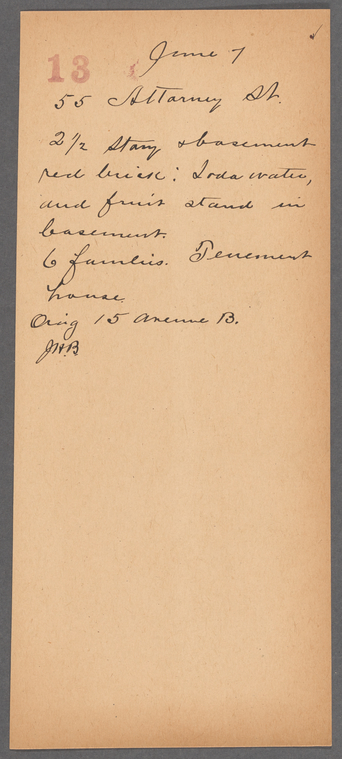 June 7
13
55 Attorney St.
2 1/2 story & basement
red brick: Soda water,
and fruit stand in
basement.
6 families. Tenement
house.
Orig 15 Avenue B.
JHB